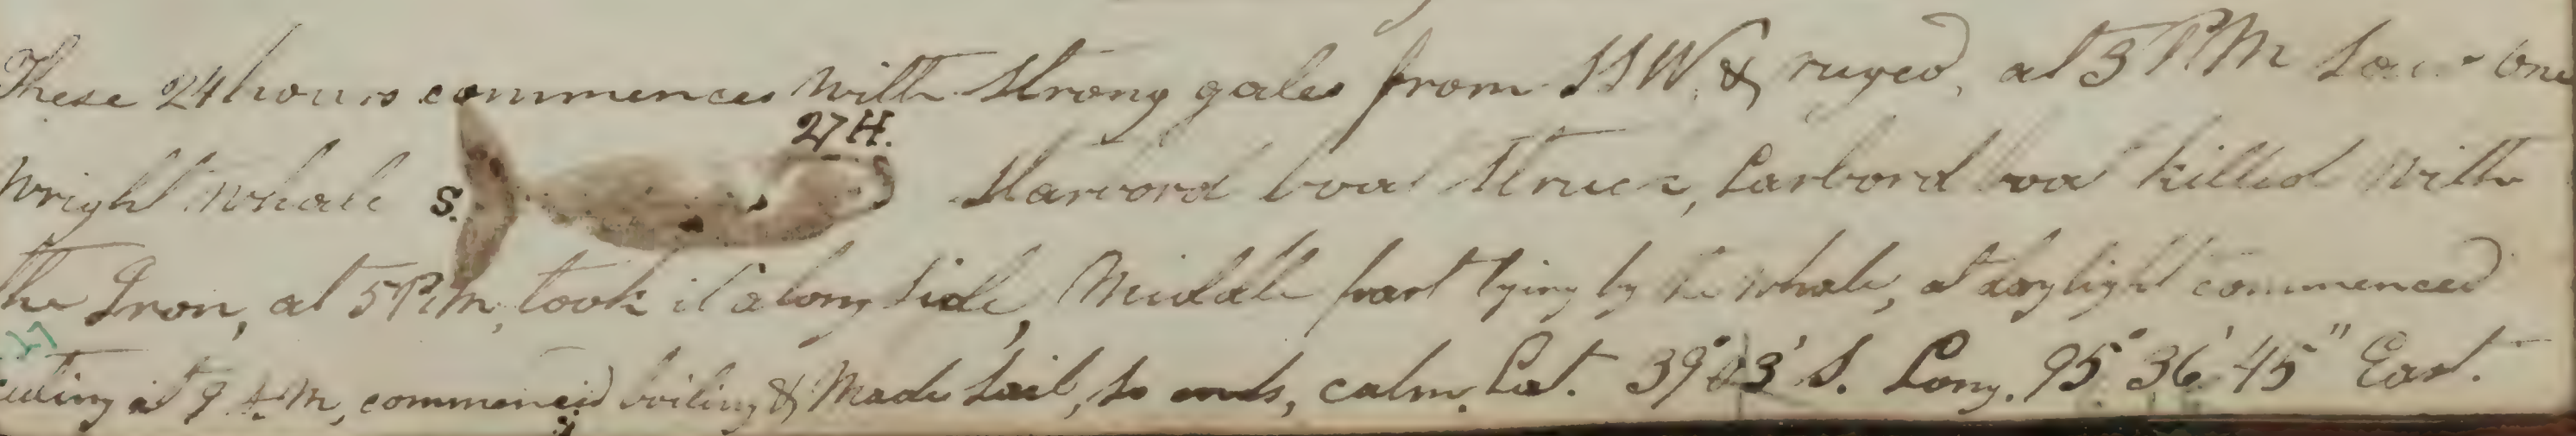 These 24 hours commences with strong gales from SSW, & ruged, at 3 PM saw one
27 H.
Wright whale S. Starbord boat struck, Larbord boat killed with
the Iron, at 5 P.M, took it along side, Middle part lying by the whale, at daylight commenced
27
cuting at 9 AM, commenced boiling & Made sail, so ends, calm, Lat. 39° 03' S. Long. 95° 36' 45" East.